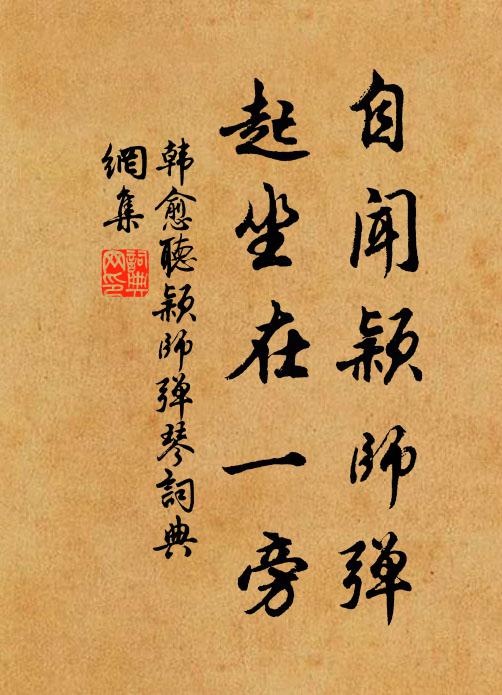 自闻颖师弹
起坐在一旁
韩愈聽颖师弹琴詞典
網集
詞典
网印